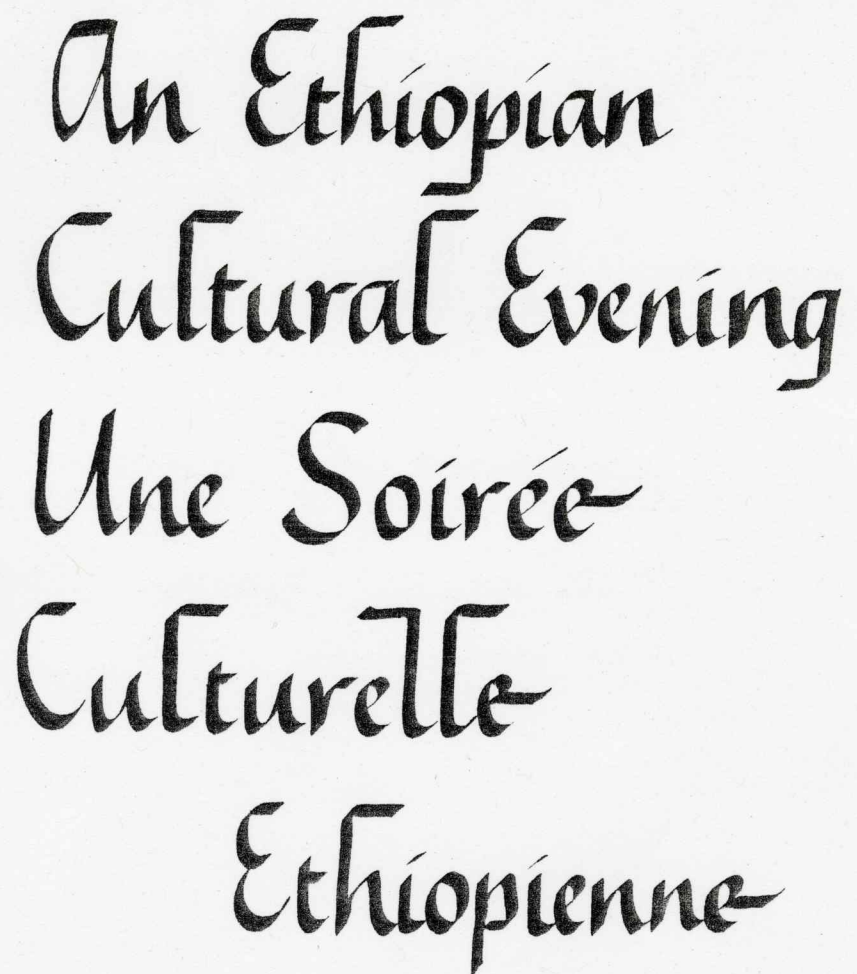 An Ethiopian
Cultural Evening
Une Soirée
Culturelle
Ethiopienne